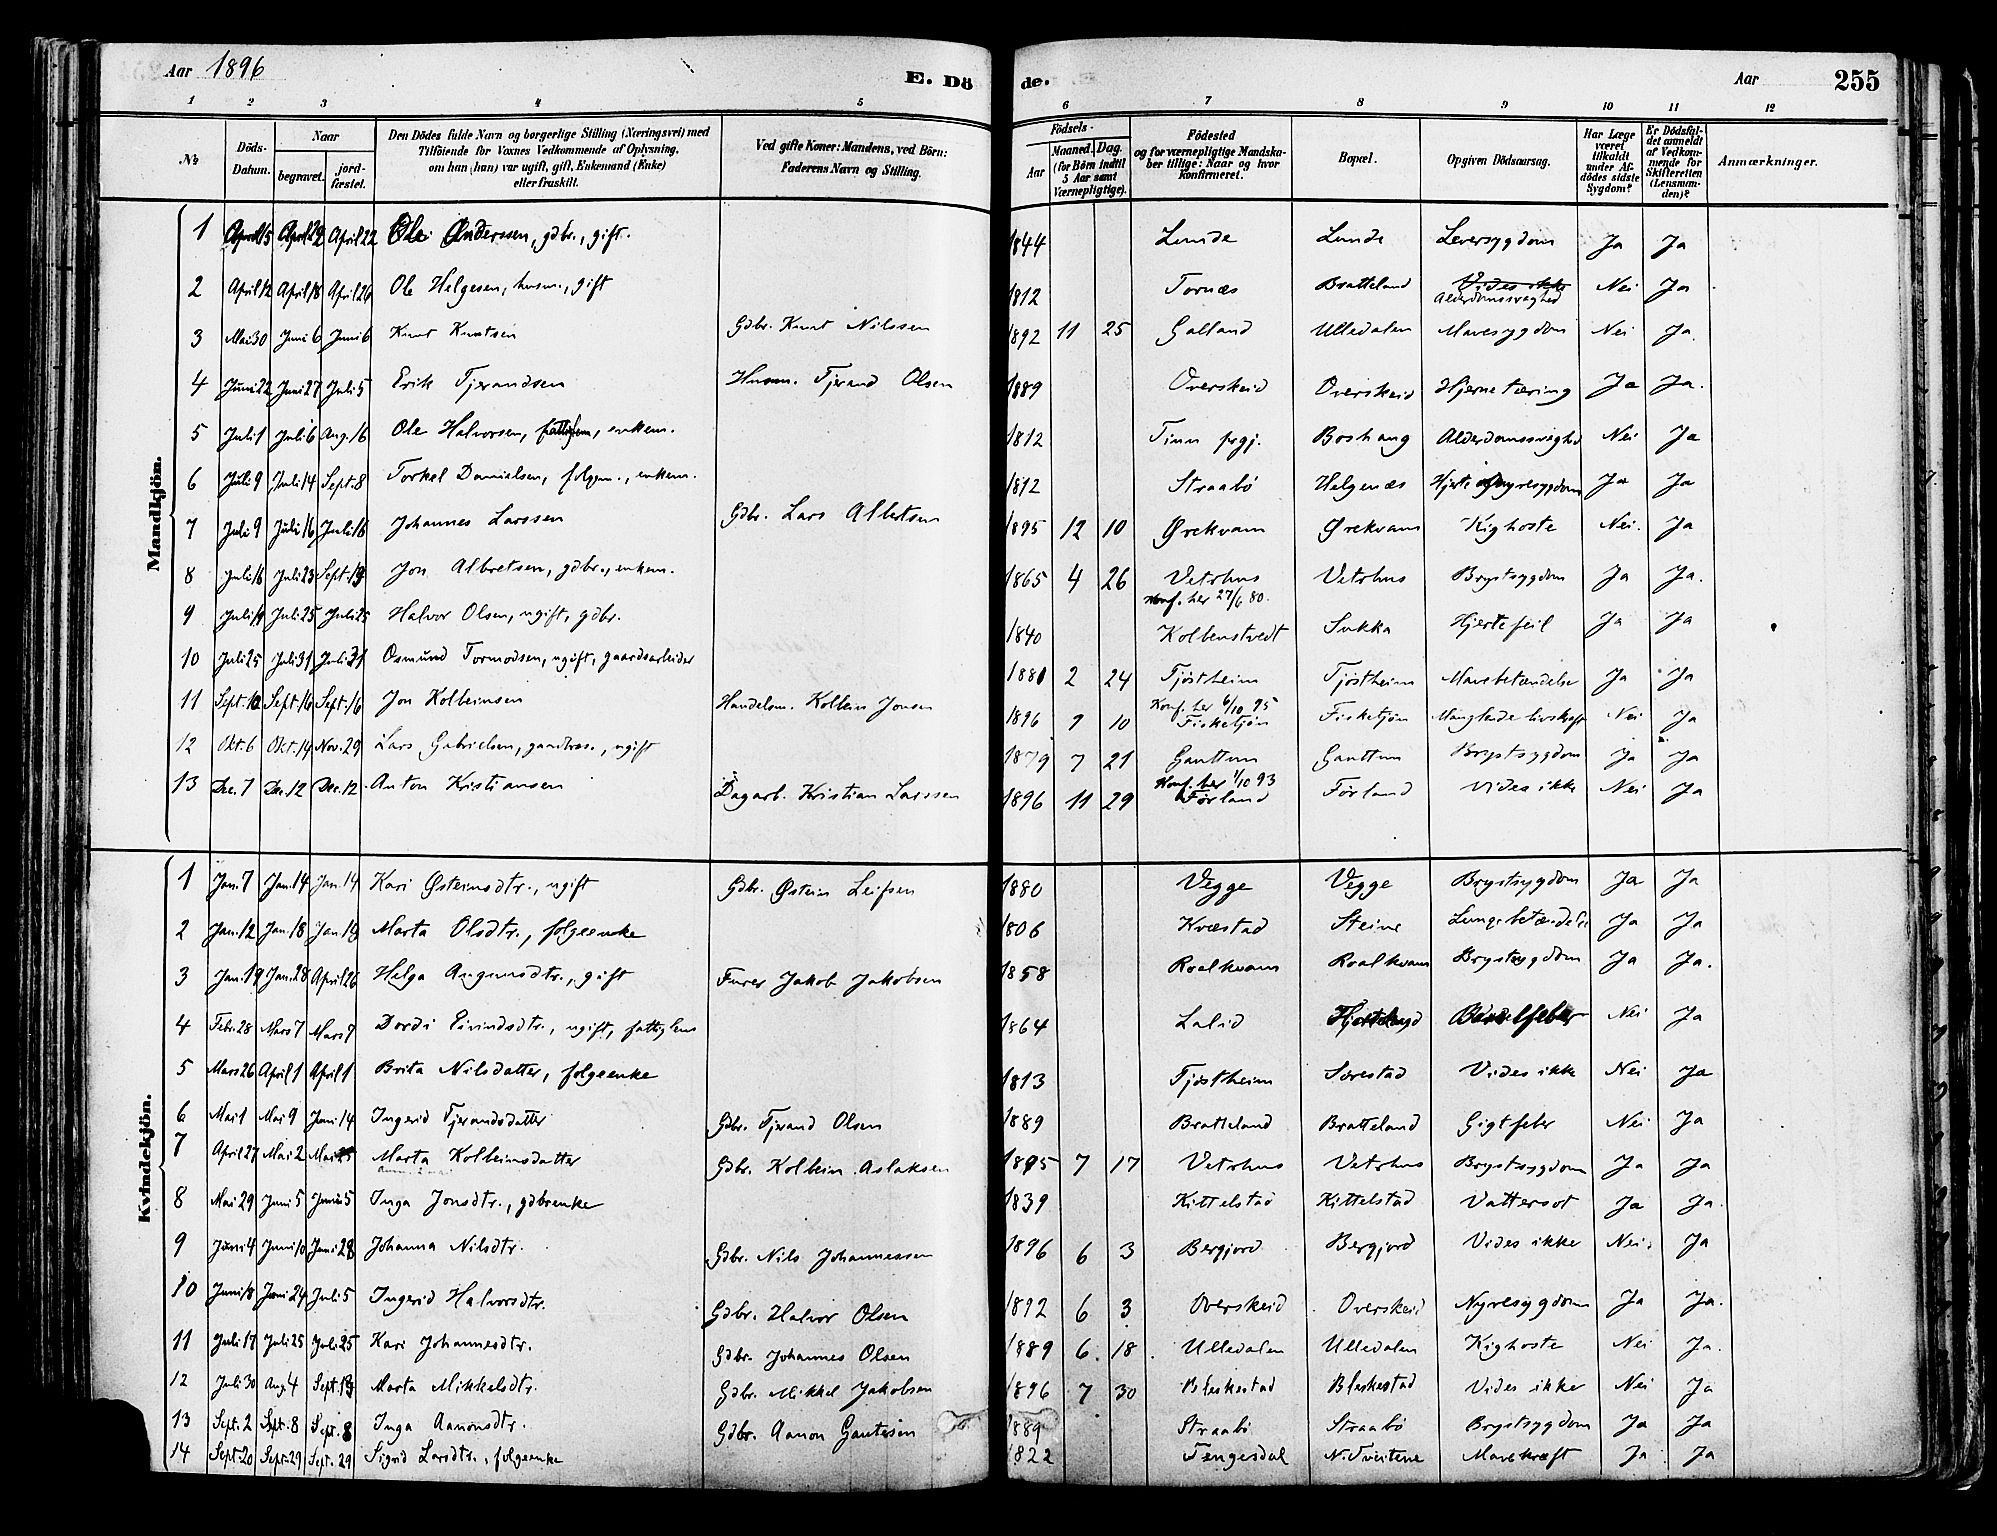 Aar 1896
E. Dö
de.
Aar
255
1 2 3 4 5 6 7 8 9 10 11 12
№
Döds-Datum.
Naar
begravet.
jord-fæstet.
Den Dödes fulde Navn og borgerlige Stilling (Næringsvei) med Tilföiende for Voxnes Vedkommende af Oplysning, om han (hun) var ugift, gift, Enkemand (Enke) eller fraskilt.
Ved gifte Koner: Mandens, ved Börn: Faderens Navn og Stilling.
Födsels-
Aar
Maaned. Dag.
(for Börn indtil 5 Aar samt Værnepligtige).
Födested og for værnepligtige Mandskaber tillige: Naar og hvor Konfirmeret.
Bopæl.
Opgiven Dödsaarsag.
Har Læge været tilkaldt under Afdödes sidste Sygdom?
Er Dödsfaldet anmeldt af Vedkommende for Skifteretten (Lensmanden)?
Anmærkninger.
Mandkjön.
1 April 15 April 22 April 22 Ole Anderssen, gdbr., gift. 1844 Lunde Lunde Leversygdom Ja Ja
2 April 12 April 18 April 26 Ole Helgesen, husm., gift 1812 Tornæs Bratteland Vides ikke Alderdomssvaghed Nei Ja
3 Mai 30 Juni 6 Juni 6 Knut Knutsen Gdbr. Knut Nilssen 1892 11 25 Galland Ulledalen Mavesygdom Nei Ja.
4 Juni 22 Juni 27 Juli 5 Erik Tjerandsen Husm. Tjerand Olsen 1889 Overskeid Overskeid Hjernetæring Ja Ja.
5 Juli 1 Juli 6 Aug. 16 Ole Halvorsen, fattiglem, enkem. 1812 Tinn prgj. Boshaug Alderdomssvaghed Nei Ja
6 Juli 9 Juli 14 Sept. 8 Torkel Danielsen, folgem., enkem. 1812 Straabø Helgenæs Hjerte og Nyresygdom Ja Ja
7 Juli 9 Juli 16 Juli 16 Johannes Larssen Gdbr. Lars Albertsen 1895 12 10 Ørekvam Ørekvam Kighoste Nei. Ja
8 Juli 16 Juli 23 Sept. 13 Jon Albretsen, gdbr., enkem. 1865 4 26 Vetrhus Konf. her 27/6 80. Vetrhus Brystsygdom Ja Ja.
9 Juli 19 Juli 25 Juli 25 Halvor Olsen, ugift, gdbr. 1840 Kolbenstvedt Sukka Hjertefeil Ja Ja
10 Juli 25 Juli 31 Juli 31 Osmund Tormodsen, ugift, gaardsarbeider 1881 2 24 Tjøstheim Konf. her 6/10 95 Tjøstheim Mavebetændelse Ja Ja
11 Sept. 12 Sept. 16 Sept. 16 Jon Kolbeinsen Handelsm. Kolbein Jonsen 1896 9 10 Fisketjøn Fisketjøn Manglende livskraft Nei Ja
12 Okt. 6 Okt. 14 Nov. 29 Lars Gabrielsen, ugift 1879 7 21 Gauttun Konf. her 1/10 93 Gauttun Brystsygdom Ja Ja
13 Dec. 7 Dec. 12 Dec. 12 Anton Kristiansen Dagarb. Kristian Larssen 1896 11 29 Førland Førland Vides ikke Nei Ja
Kvindekjön.
1 Jan. 7 Jan. 14 Jan. 14 Kari Østeinsdtr., ugift Gdbr. Østein Leifsen 1880 Vegge Vegge Brystsygdom Ja Ja
2 Jan. 12 Jan. 18 Jan. 18 Marta Olsdtr., folgeenke 1806 Kvæstad Steine Lungebetændelse Ja Ja
3 Jan. 19 Jan. 28 April 26 Helga Aagensdtr., gift Furer Jakob Jakobsen 1858 Roalkvam Roalkvam Brystsygdom Ja Ja.
4 Febr. 28 Mars 7 Mars 7 Dordi Eivindsdtr., ugift, fattiglem 1864 Lalid Barselfeber Nei Ja
5 Mars 26 April 1 April 1 Brita Nilsdatter, folgeenke 1813 Tjøstheim Sørestad Vides ikke Nei Ja
6 Mai 1 Mai 9 Juni 14 Ingerid Tjerandsdatter Gdbr. Tjerand Olsen 1889 Bratteland Bratteland Gigtfeber Nei Ja
7 April 27 Mai 2 Mai Marta Kolbeinsdatter Gdbr. Kolbein Aslaksen 1895 7 17 Vetrhus Vetrhus Brystsygdom Ja Ja
8 Mai 29 Juni 5 Juni 5 Inga Jonsdtr., gdbrenke 1839 Kittelstad Kittelstad Vattersot Ja Ja.
9 Juni 4 Juni 10 Juni 28 Johanna Nilsdtr. Gdbr. Nils Johannessen 1896 6 3 Bergjord Bergjord Vides ikke Nei Ja
10 Juni 18 Juni 24 Juli 5 Ingerid Halvorsdtr. Gdbr. Halvor Olsen 1892 6 3 Overskeid Overskeid Nyresygdom Ja Ja.
11 Juli 17 Juli 25 Juli 25 Kari Johannesdtr. Gdbr. Johannes Olsen 1889 6 18 Ulledalen Ulledalen Kighoste Nei Ja.
12 Juli 30 Aug. 4 Sept. 13 Marta Mikkelsdtr. Gdbr. Mikkel Jakobsen 1896 7 30 Bleskestad Bleskestad Vides ikke Nei Ja
13 Sept. 2 Sept. 8 Sept. 8 Inga Aanonsdtr. Gdbr. Aanon Gautesen 1889 Straabø Straabø Brystsygdom Ja Ja
14 Sept. 20 Sept. 29 Sept. 29 Sigrid Larsdtr., folgeenke 1822 Tengesdal N. Tveitene Mavekræft Ja Ja